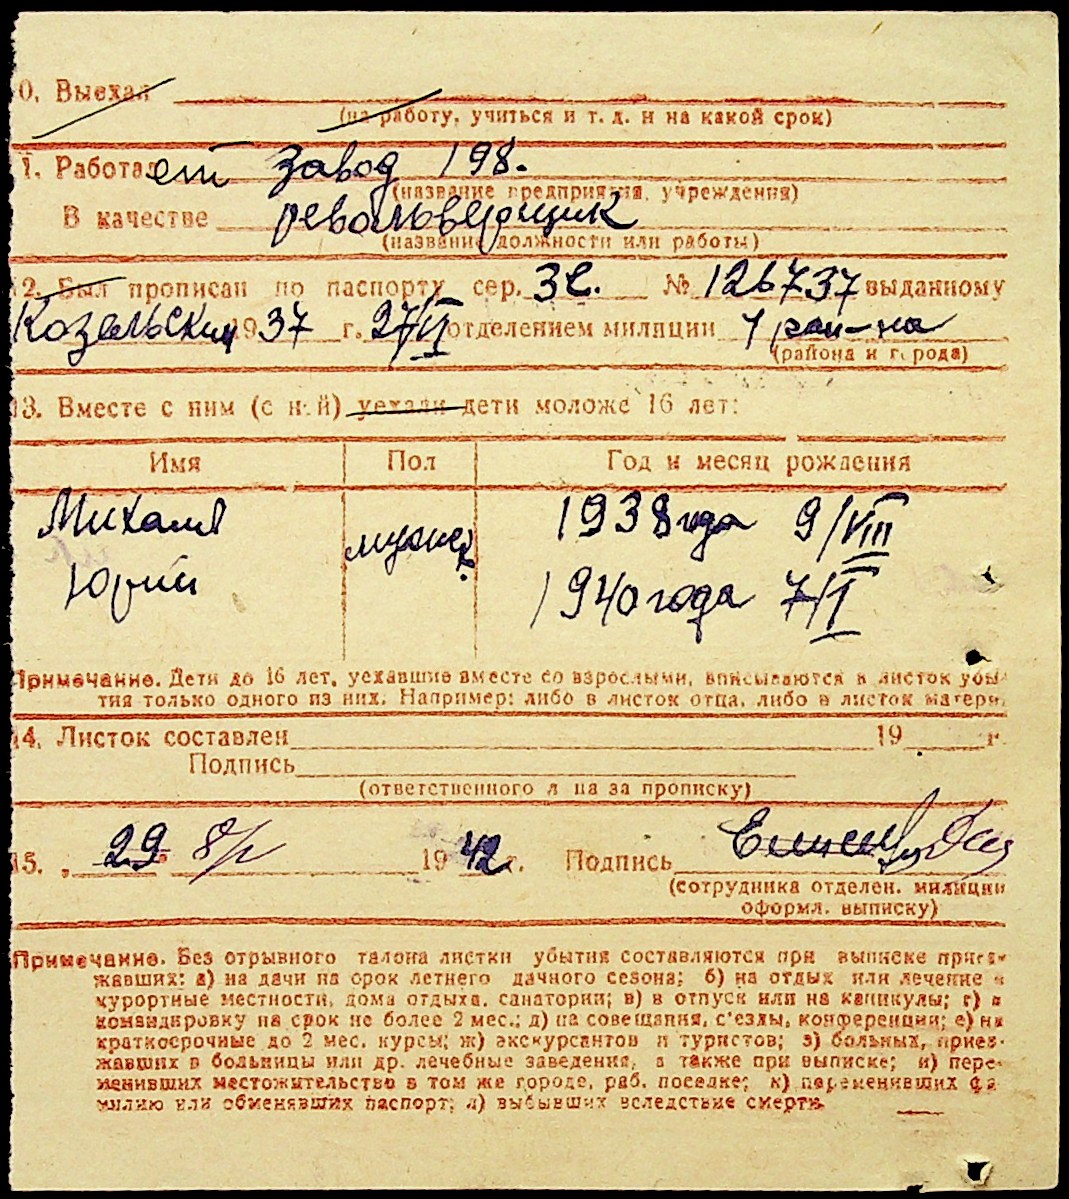 0. Выехал
(на работу, учиться и т. д. и на какой срок)
1. Работает Завод 198.
(название предприятия, учреждения)
В качестве револьверщик
(название должности или работы)
12. Был прописан по паспорту сер. ЗС. № 126737 выданному
Козельским 1937 г. 27/VI отделением милиции 1 рай-на
(района и города)
13. Вместе с ним (с ней) уехали дети моложе 16 лет:
Имя Пол Год и месяц рождения
Михаил 1938 года 9/VIII
мужск.
Юрий 1940 года 7/II
Примечание. Дети до 16 лет, уехавшие вместе со взрослыми, вписываются в листок убы-
тия только одного из них. Например: либо в листок отца, либо в листок матери.
14. Листок составлен 19 г.
Подпись
(ответственного лица за прописку)
15. „ 29 8/ 1942 г. Подпись
(сотрудника отделен. милиции
оформл. выписку)
Примечание. Без отрывного талона листки убытия составляются при выписке приез-
жавших: а) на дачи на срок летнего дачного сезона; б) на отдых или лечение в
курортные местности, дома отдыха, санатории; в) в отпуск или на каникулы; г) в
командировку на срок не более 2 мес.; д) на совещания, с'езды, конференции; е) на
краткосрочные до 2 мес. курсы; ж) экскурсантов и туристов; з) больных, приез-
жавших в больницы или др. лечебные заведения, а также при выписке; и) пере-
менивших местожительство в том же городе, раб. поселке; к) переменивших фа-
милию или обменявших паспорт; л) выбывших вследствие смерти.